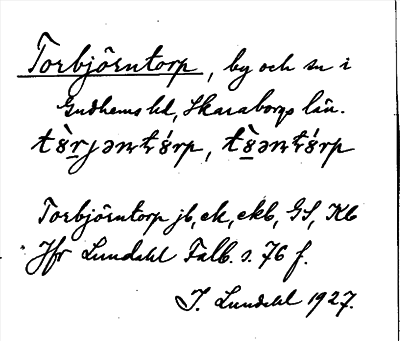 Torbjörntorp, by och sn i
Gudhems hd, Skaraborgs län.
Torbjörntorp jb, ek, ekb, GS, Kb
Jfr Lundahl Falb. s. 76 f.
I. Lundahl 1927.